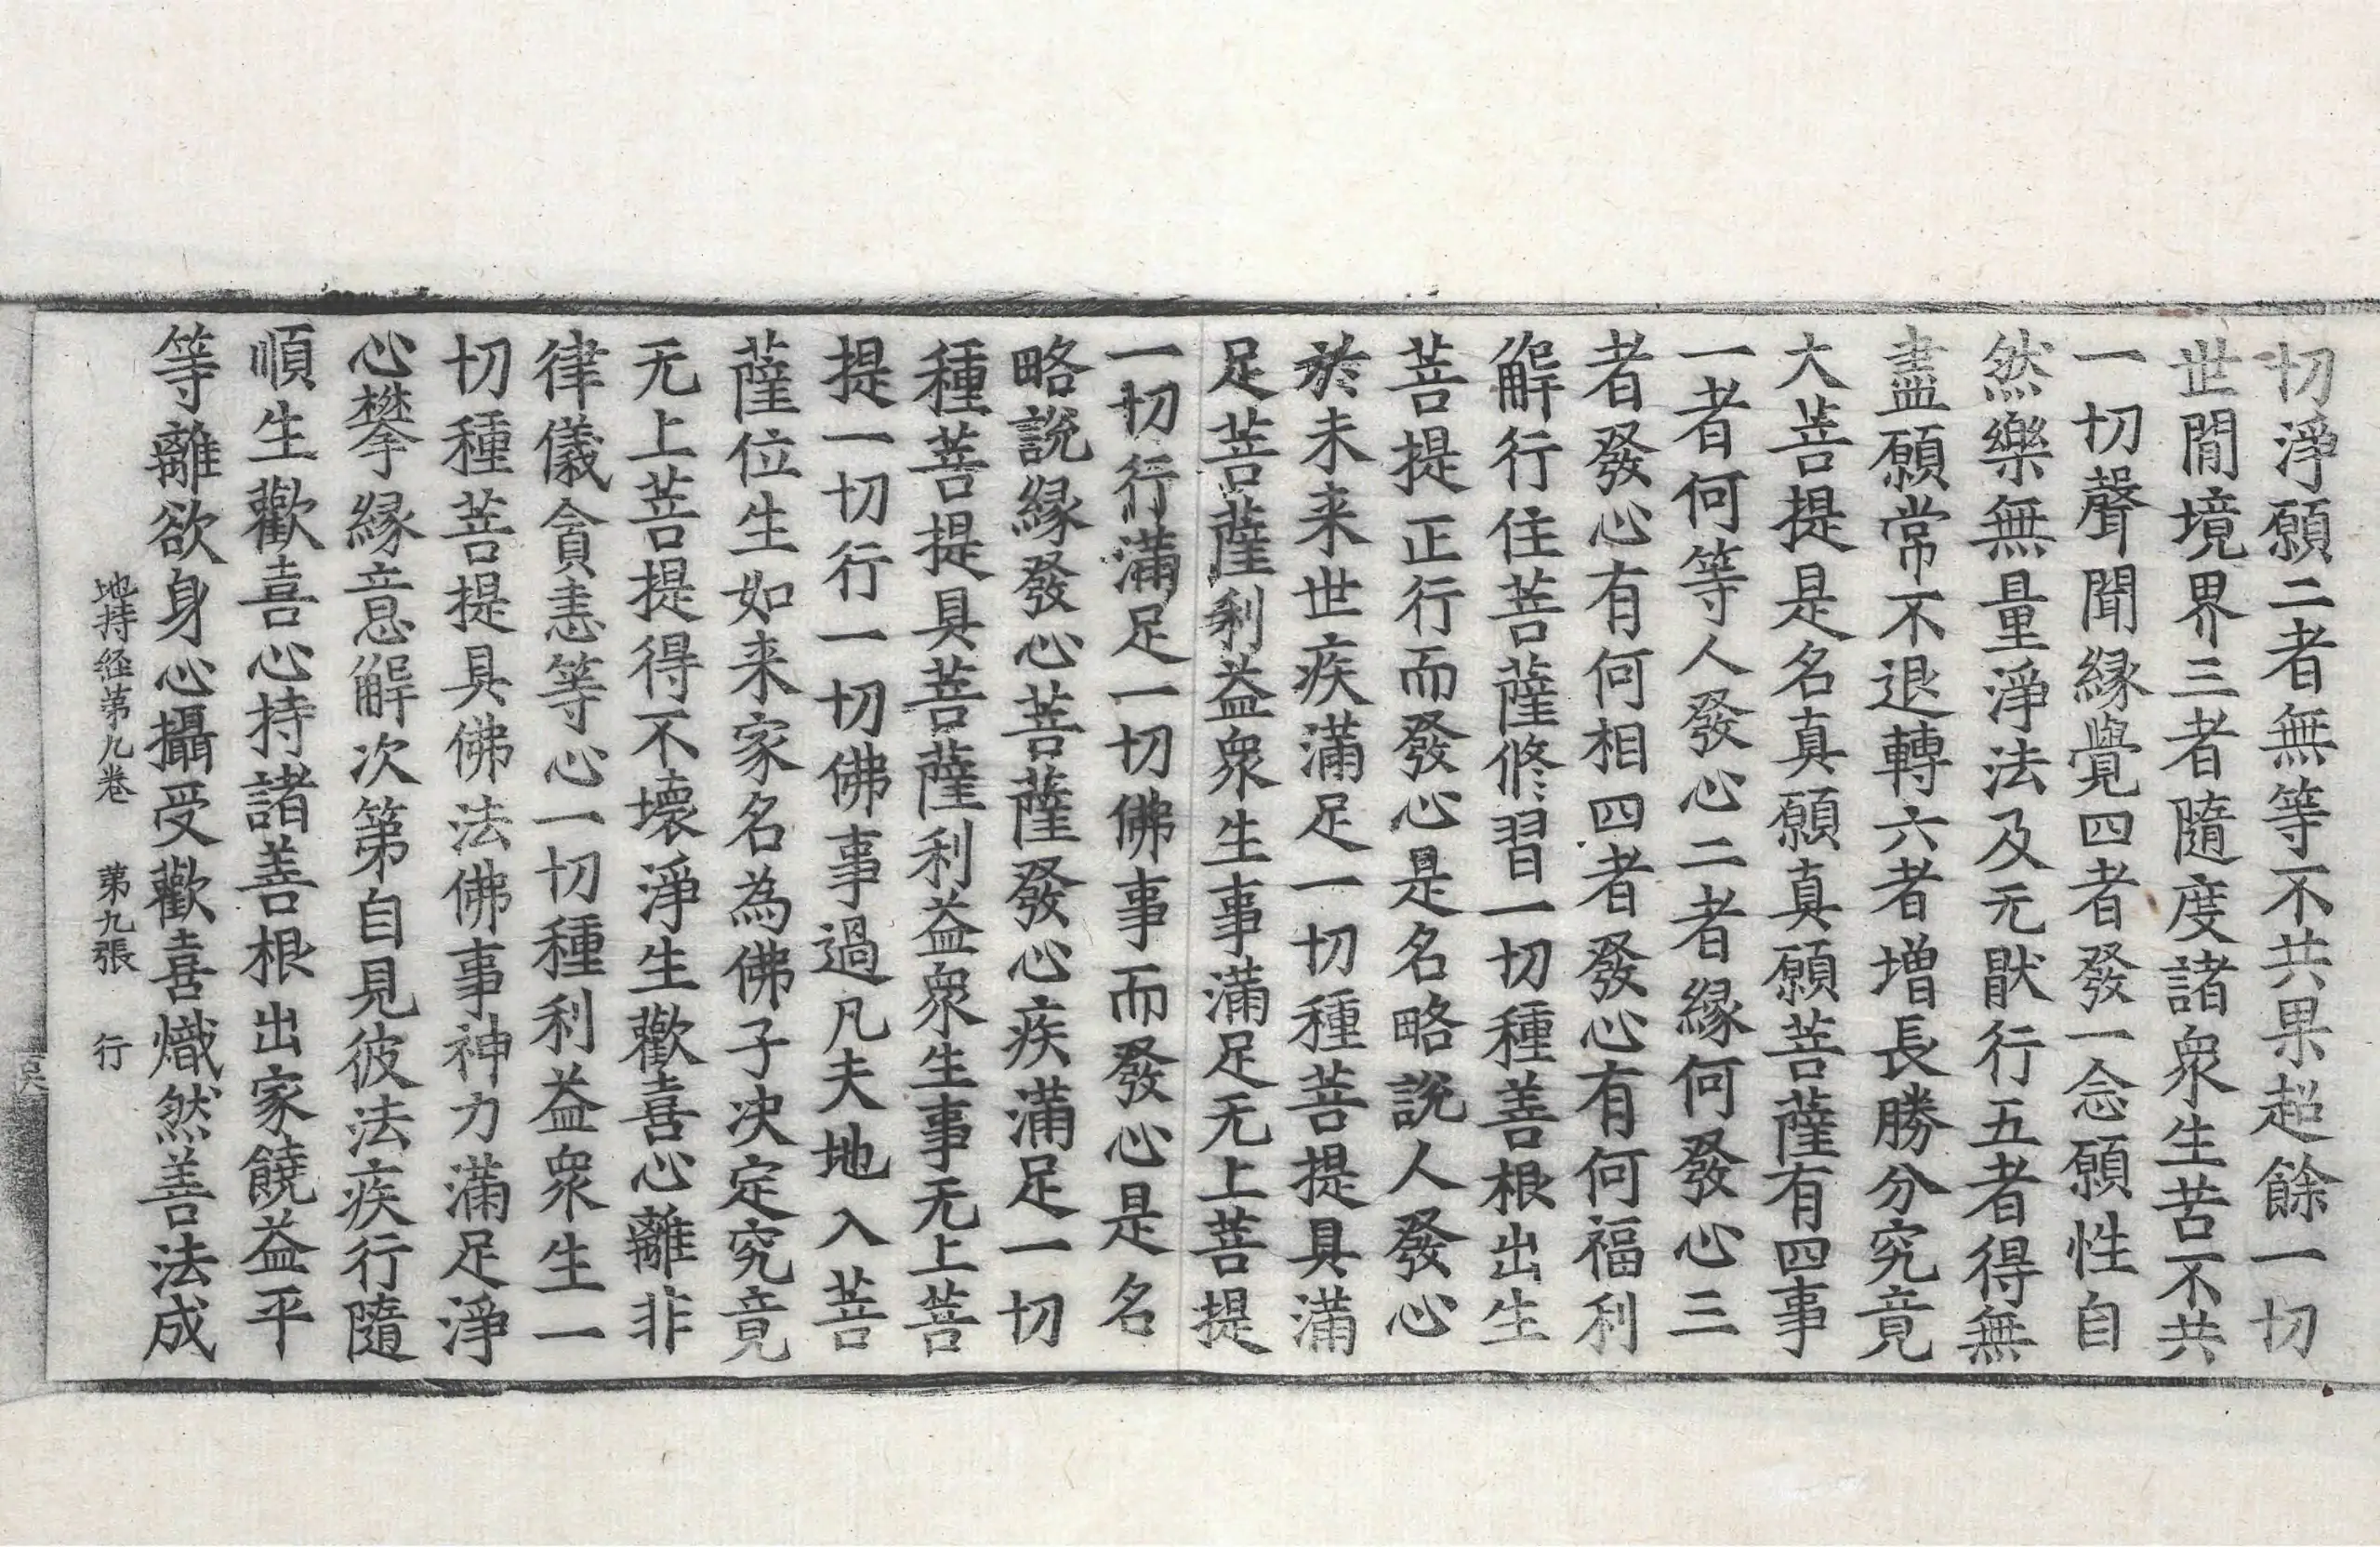 切淨願二者無等不共果超餘一切
世閒境界三者隨度諸衆生苦不共
一切聲聞緣覺四者發一念願性自
然樂無量淨法及无猒行五者得無
盡願常不退轉六者增長勝分究竟
大菩提是名真願真願菩薩有四事
一者何等人發心二者緣何發心三
者發心有何相四者發心有何福利
解行住菩薩修習一切種善根出生
菩提正行而發心是名略說人發心
於未来世疾滿足一切種菩提具滿
足菩薩利益衆生事滿足无上菩提
一切行滿足一切佛事而發心是名
略說緣發心菩薩發心疾滿足一切
種菩提具菩薩利益衆生事无上菩
提一切行一切佛事過凡夫地入菩
薩位生如来家名為佛子决定究竟
无上菩提得不壞淨生歡喜心離非
律儀貪恚等心一切種利益衆生一
切種菩提具佛法佛事神力滿足淨
心攀緣意解次第自見彼法疾行隨
順生歡喜心持諸善根出家饒益平
等離欲身心攝受歡喜熾然善法成
地持經第九卷 第九張 行